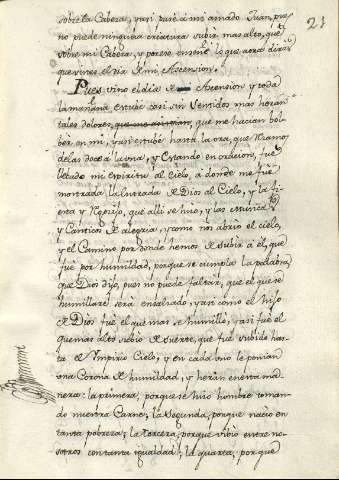 21
sobre la Cabeza, y asi puse à mi amado Juan, pues
no puede ninguna criatura subir mas alto, que
sobre mi Cabeza, y por eso enseñè lo que aora dirà
que vines el dia de mi Ascension.
Pues vino el dia de la Ascension y toda
la mañana estube casi sin sentidos mas heran
tales dolores, que me hacian bol-
ber en mi, y asi estube hasta la ora, que llaman
de las doce a la una, y estando en oracion, fue
llebado mi espiritu al Cielo, a donde me fue
mostrada la entrada de Dios al Cielo, y la fi-
esta y regocijo, que alli se hizo, y las Musicas
y Canticos de alegria, y como nos abrio el cielo,
y el Camino por donde hemos de subir à èl, que
fuè por humildad, porque se cumpla la palabra
que Dios dijo, pues no puede faltar, que el que se
humillare serà ensalzado, y asi como el hijo
de Dios fuè el que mas se humillò, y asi fuè el
que mas alto subio de suerte, que fuè subido has-
ta el Impirio Cielo, y en cada uno le ponian
una Corona de humildad, y heran en esta ma-
nera: la primera, porque se hizo hombre toman-
do nuestra Carne; la segunda, porque naciò en
tanta pobreza; la tercera, porque vibiò entre no-
sotros con tanta igualdad; la quarta, por que